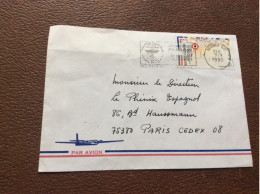 Monsieur le Directeur
Le Phénix Espagnol
86, Bd Haussmann
75380 PARIS CEDEX 08
PAR AVION